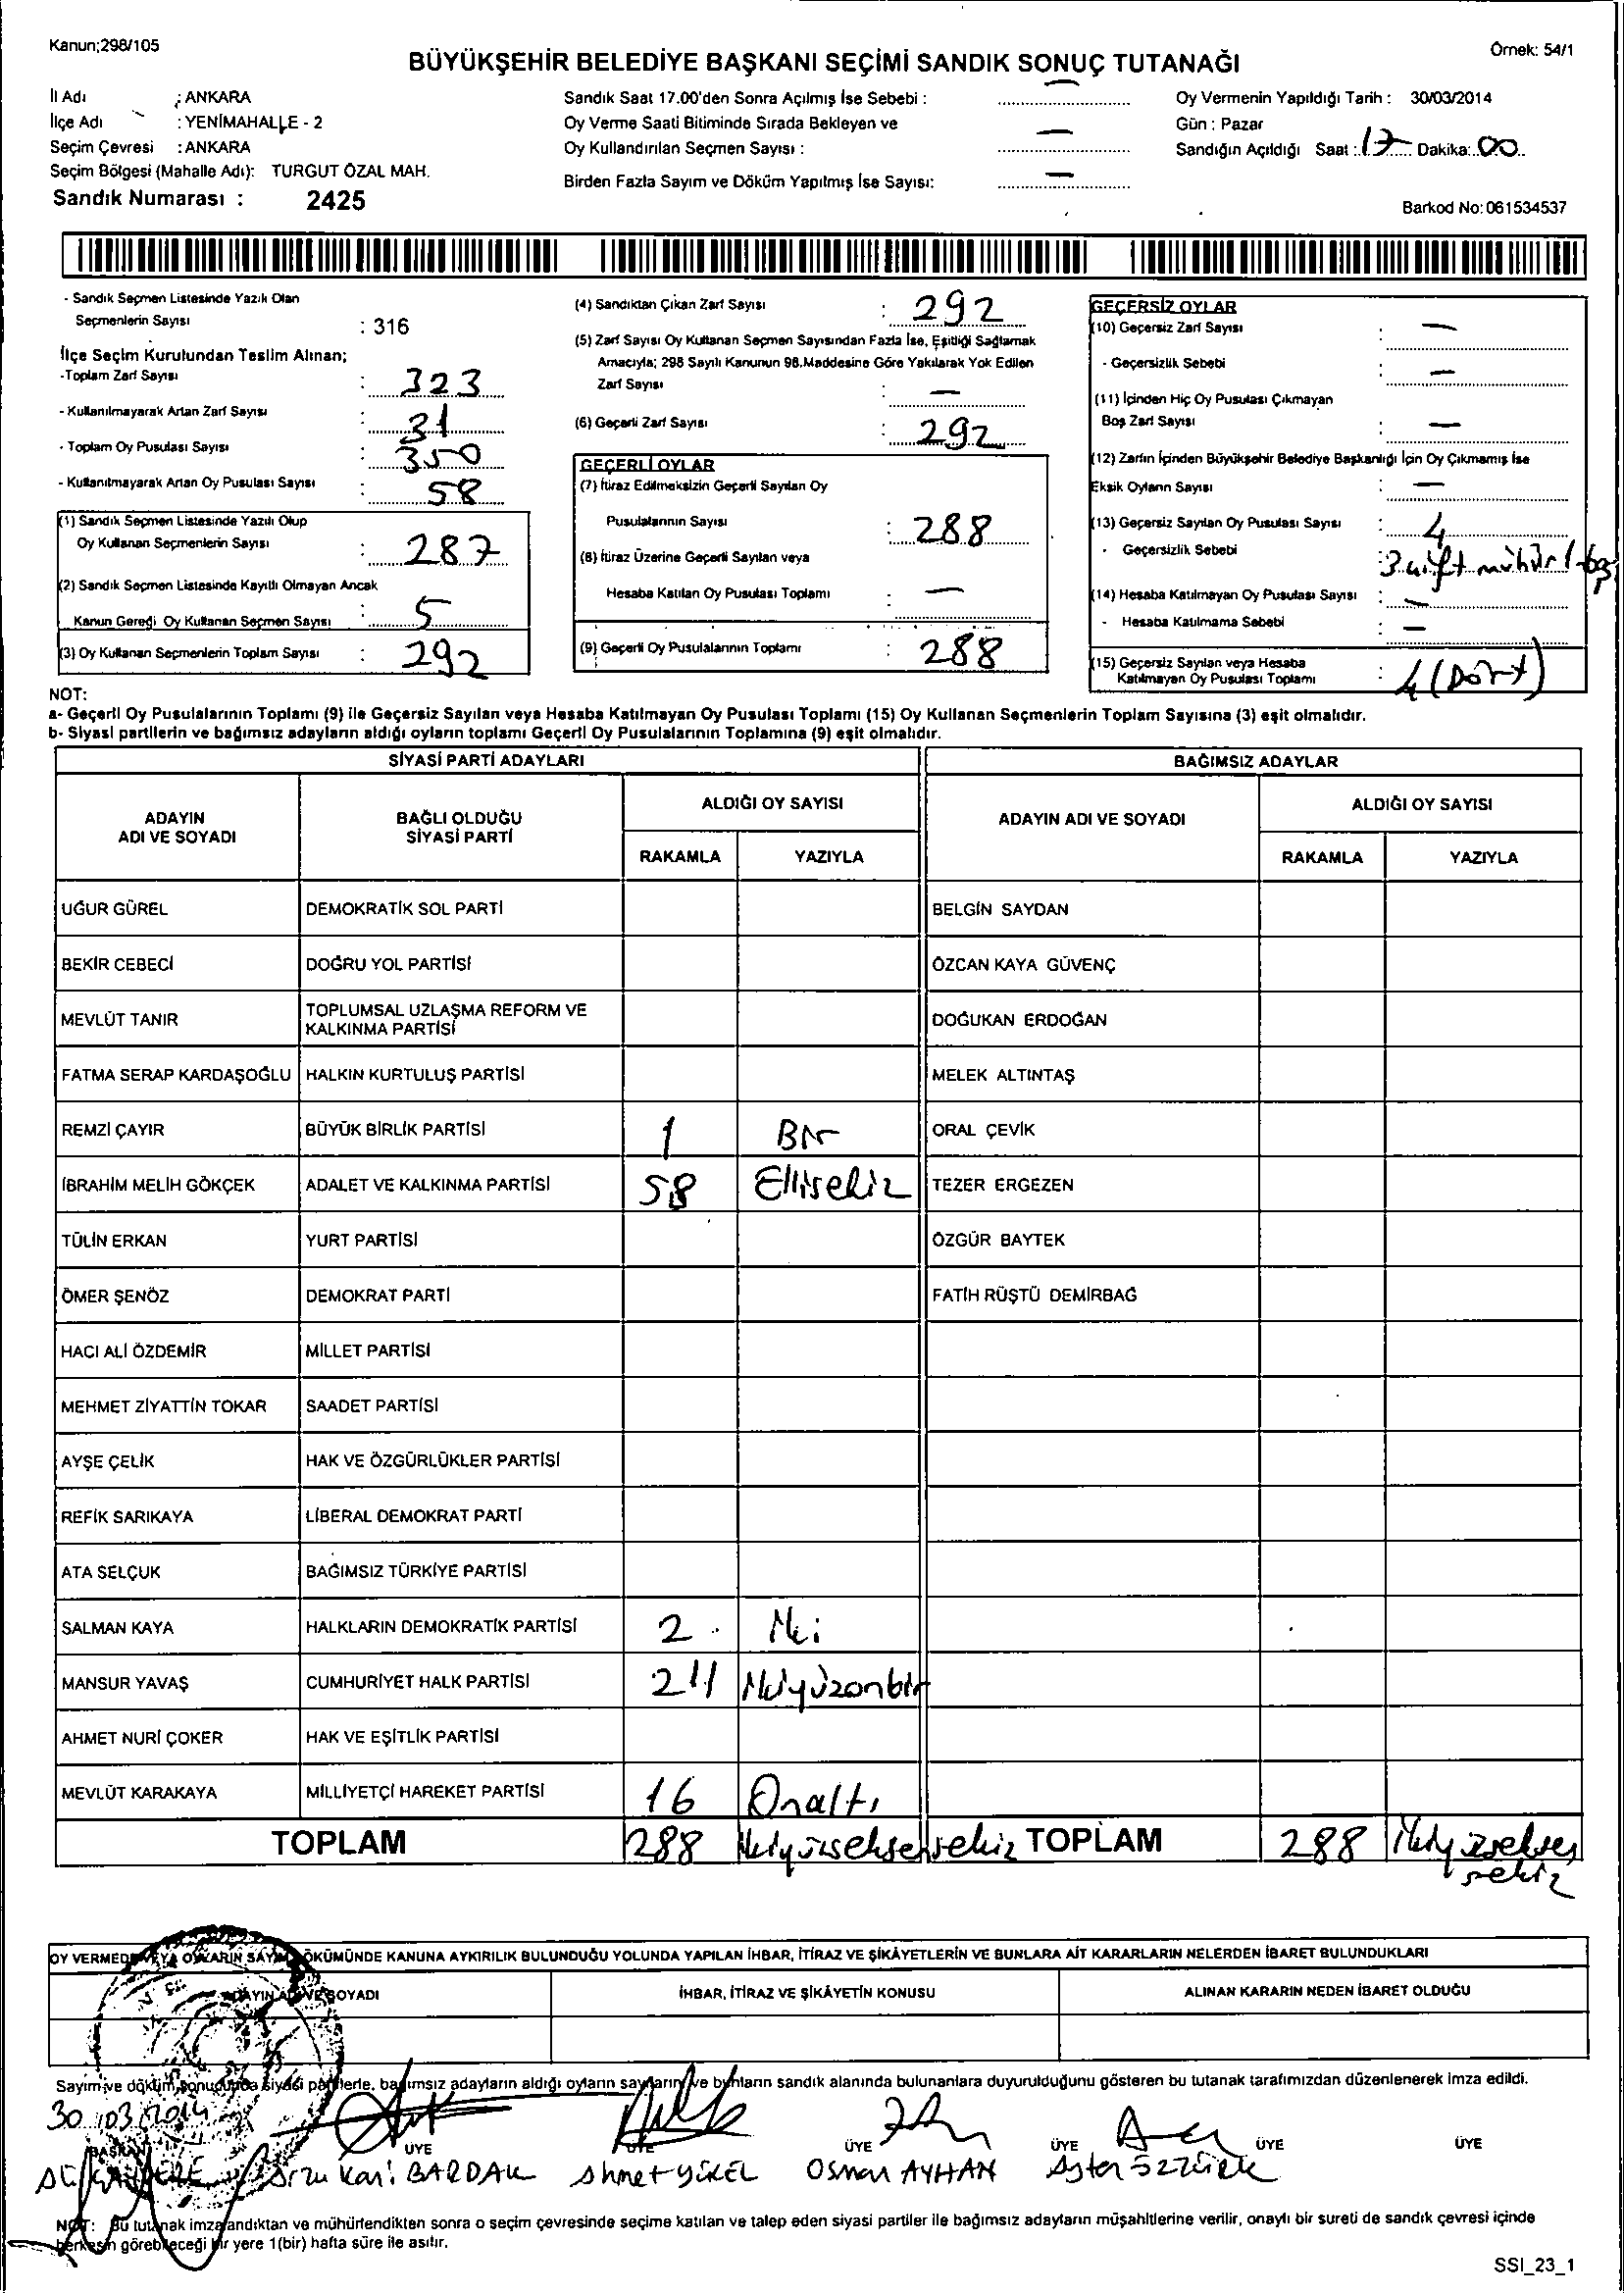 Kanun;298/105
Örnek: 54/1
BÜYÜKŞEHİR BELEDİYE BAŞKANI SEÇİMİ SANDIK SONUÇ TUTANAĞI
İl Adı : ANKARA
İlçe Adı : YENİMAHALLE - 2
Seçim Çevresi : ANKARA
Seçim Bölgesi (Mahalle Adı): TURGUT ÖZAL MAH.
Sandık Numarası : 2425
Sandık Saat 17.00'den Sonra Açılmış İse Sebebi : —
Oy Verme Saati Bitiminde Sırada Bekleyen ve
Oy Kullandırılan Seçmen Sayısı : —
Birden Fazla Sayım ve Döküm Yapılmış İse Sayısı: —
Oy Vermenin Yapıldığı Tarih : 30/03/2014
Gün : Pazar
Sandığın Açıldığı Saat : 17 Dakika: 00
Barkod No: 061534537
- Sandık Seçmen Listesinde Yazılı Olan
Seçmenlerin Sayısı : 316
İlçe Seçim Kurulundan Teslim Alınan;
-Toplam Zarf Sayısı : 323
- Kullanılmayarak Artan Zarf Sayısı : 31
- Toplam Oy Pusulası Sayısı : 350
- Kullanılmayarak Artan Oy Pusulası Sayısı : 58
(1) Sandık Seçmen Listesinde Yazılı Olup
Oy Kullanan Seçmenlerin Sayısı : 287
(2) Sandık Seçmen Listesinde Kayıtlı Olmayan Ancak
Kanun Gereği Oy Kullanan Seçmen Sayısı : 5
(3) Oy Kullanan Seçmenlerin Toplam Sayısı : 292
(4) Sandıktan Çıkan Zarf Sayısı : 292
(5) Zarf Sayısı Oy Kullanan Seçmen Sayısından Fazla İse, Eşitliği Sağlamak
Amacıyla; 298 Sayılı Kanunun 98.Maddesine Göre Yakılarak Yok Edilen
Zarf Sayısı : —
(6) Geçerli Zarf Sayısı : 292
GEÇERLİ OYLAR
(7) İtiraz Edilmeksizin Geçerli Sayılan Oy
Pusulalarının Sayısı : 288
(8) İtiraz Üzerine Geçerli Sayılan veya
Hesaba Katılan Oy Pusulası Toplamı : —
(9) Geçerli Oy Pusulalarının Toplamı : 288
GEÇERSİZ OYLAR
(10) Geçersiz Zarf Sayısı : —
- Geçersizlik Sebebi : —
(11) İçinden Hiç Oy Pusulası Çıkmayan
Boş Zarf Sayısı : —
(12) Zarfın İçinden Büyükşehir Belediye Başkanlığı İçin Oy Çıkmamış İse
Eksik Oyların Sayısı : —
(13) Geçersiz Sayılan Oy Pusulası Sayısı : 4
- Geçersizlik Sebebi : 3 çift mühür 1 boş
(14) Hesaba Katılmayan Oy Pusulası Sayısı : —
- Hesaba Katılmama Sebebi : —
(15) Geçersiz Sayılan veya Hesaba
Katılmayan Oy Pusulası Toplamı : 4 (Dört)
NOT:
a- Geçerli Oy Pusulalarının Toplamı (9) ile Geçersiz Sayılan veya Hesaba Katılmayan Oy Pusulası Toplamı (15) Oy Kullanan Seçmenlerin Toplam Sayısına (3) eşit olmalıdır.
b- Siyasi partilerin ve bağımsız adayların aldığı oyların toplamı Geçerli Oy Pusulalarının Toplamına (9) eşit olmalıdır.
SİYASİ PARTİ ADAYLARI BAĞIMSIZ ADAYLAR
ADAYIN
ADI VE SOYADI
BAĞLI OLDUĞU
SİYASİ PARTİ
ALDIĞI OY SAYISI
RAKAMLA YAZIYLA
ADAYIN ADI VE SOYADI
ALDIĞI OY SAYISI
RAKAMLA YAZIYLA
UĞUR GÜREL DEMOKRATİK SOL PARTİ BELGİN SAYDAN
BEKİR CEBECİ DOĞRU YOL PARTİSİ ÖZCAN KAYA GÜVENÇ
MEVLÜT TANIR TOPLUMSAL UZLAŞMA REFORM VE
KALKINMA PARTİSİ DOĞUKAN ERDOĞAN
FATMA SERAP KARDAŞOĞLU HALKIN KURTULUŞ PARTİSİ MELEK ALTINTAŞ
REMZİ ÇAYIR BÜYÜK BİRLİK PARTİSİ 1 Bir ORAL ÇEVİK
İBRAHİM MELİH GÖKÇEK ADALET VE KALKINMA PARTİSİ 58 Ellisekiz TEZER ERGEZEN
TÜLİN ERKAN YURT PARTİSİ ÖZGÜR BAYTEK
ÖMER ŞENÖZ DEMOKRAT PARTİ FATİH RÜŞTÜ DEMİRBAĞ
HACI ALİ ÖZDEMİR MİLLET PARTİSİ
MEHMET ZİYATTİN TOKAR SAADET PARTİSİ
AYŞE ÇELİK HAK VE ÖZGÜRLÜKLER PARTİSİ
REFİK SARIKAYA LİBERAL DEMOKRAT PARTİ
ATA SELÇUK BAĞIMSIZ TÜRKİYE PARTİSİ
SALMAN KAYA HALKLARIN DEMOKRATİK PARTİSİ 2 İki
MANSUR YAVAŞ CUMHURİYET HALK PARTİSİ 211 İkiyüzonbir
AHMET NURİ ÇOKER HAK VE EŞİTLİK PARTİSİ
MEVLÜT KARAKAYA MİLLİYETÇİ HAREKET PARTİSİ 16 Onaltı
TOPLAM 288 İkiyüzseksensekiz TOPLAM 288 İkiyüzseksen
sekiz
OY VERMEDE VEYA OYLARIN SAYIM DÖKÜMÜNDE KANUNA AYKIRILIK BULUNDUĞU YOLUNDA YAPILAN İHBAR, İTİRAZ VE ŞİKÂYETLERİN VE BUNLARA AİT KARARLARIN NELERDEN İBARET BULUNDUKLARI
ADAYIN ADI VE SOYADI İHBAR, İTİRAZ VE ŞİKÂYETİN KONUSU ALINAN KARARIN NEDEN İBARET OLDUĞU
Sayım ve döküm sonucunda siyasi partilerle, bağımsız adayların aldığı oyların sayılarını ve bunların sandık alanında bulunanlara duyurulduğunu gösteren bu tutanak tarafımızdan düzenlenerek imza edildi.
30/03/2014
BAŞKAN ÜYE ÜYE ÜYE ÜYE ÜYE ÜYE
Arzu Kari BARDAK Ahmet YÜKEL Osman AYHAN Ayten Öztürk
NOT: Bu tutanak imzalandıktan ve mühürlendikten sonra o seçim çevresinde seçime katılan ve talep eden siyasi partiler ile bağımsız adayların müşahitlerine verilir, onaylı bir sureti de sandık çevresi içinde
herkesin görebileceği bir yere 1(bir) hafta süre ile asılır.
SSI_23_1